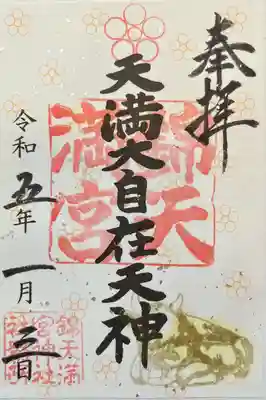 奉拝
天満大自在天神
錦天
満宮
令和五年一月三日
錦天満
宮神社